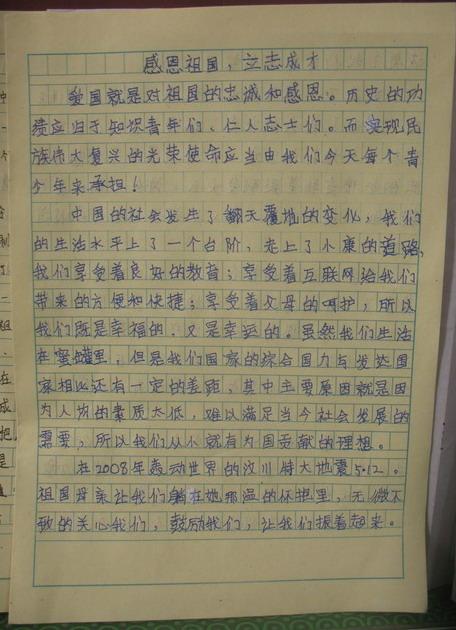 感恩祖国，立志成才
爱国就是对祖国的忠诚和感恩。历史的功
绩应归于知识青年们、仁人志士们。而实现民
族伟大复兴的光荣使命应当由我们今天每个青
个年来承担！
中国的社会发生了翻天覆地的变化，我们
的生活水平上了一个台阶，走上了小康的道路，
我们享受着良好的教育；享受着互联网给我们
带来的方便和快捷；享受着父母的呵护，所以
我们既是幸福的，又是幸运的。虽然我们生活
在蜜罐里，但是我们国家的综合国力与发达国
家相比还有一定的差距，其中主要原因就是因
为人均的素质太低，难以满足当今社会发展的
需要，所以我们从小就有为国贡献的理想。
在2008年轰动世界的汶川特大地震5.12。
祖国母亲让我们躺在她那温的怀抱里，无微不
致的关心我们，鼓励我们，让我们振着起来。